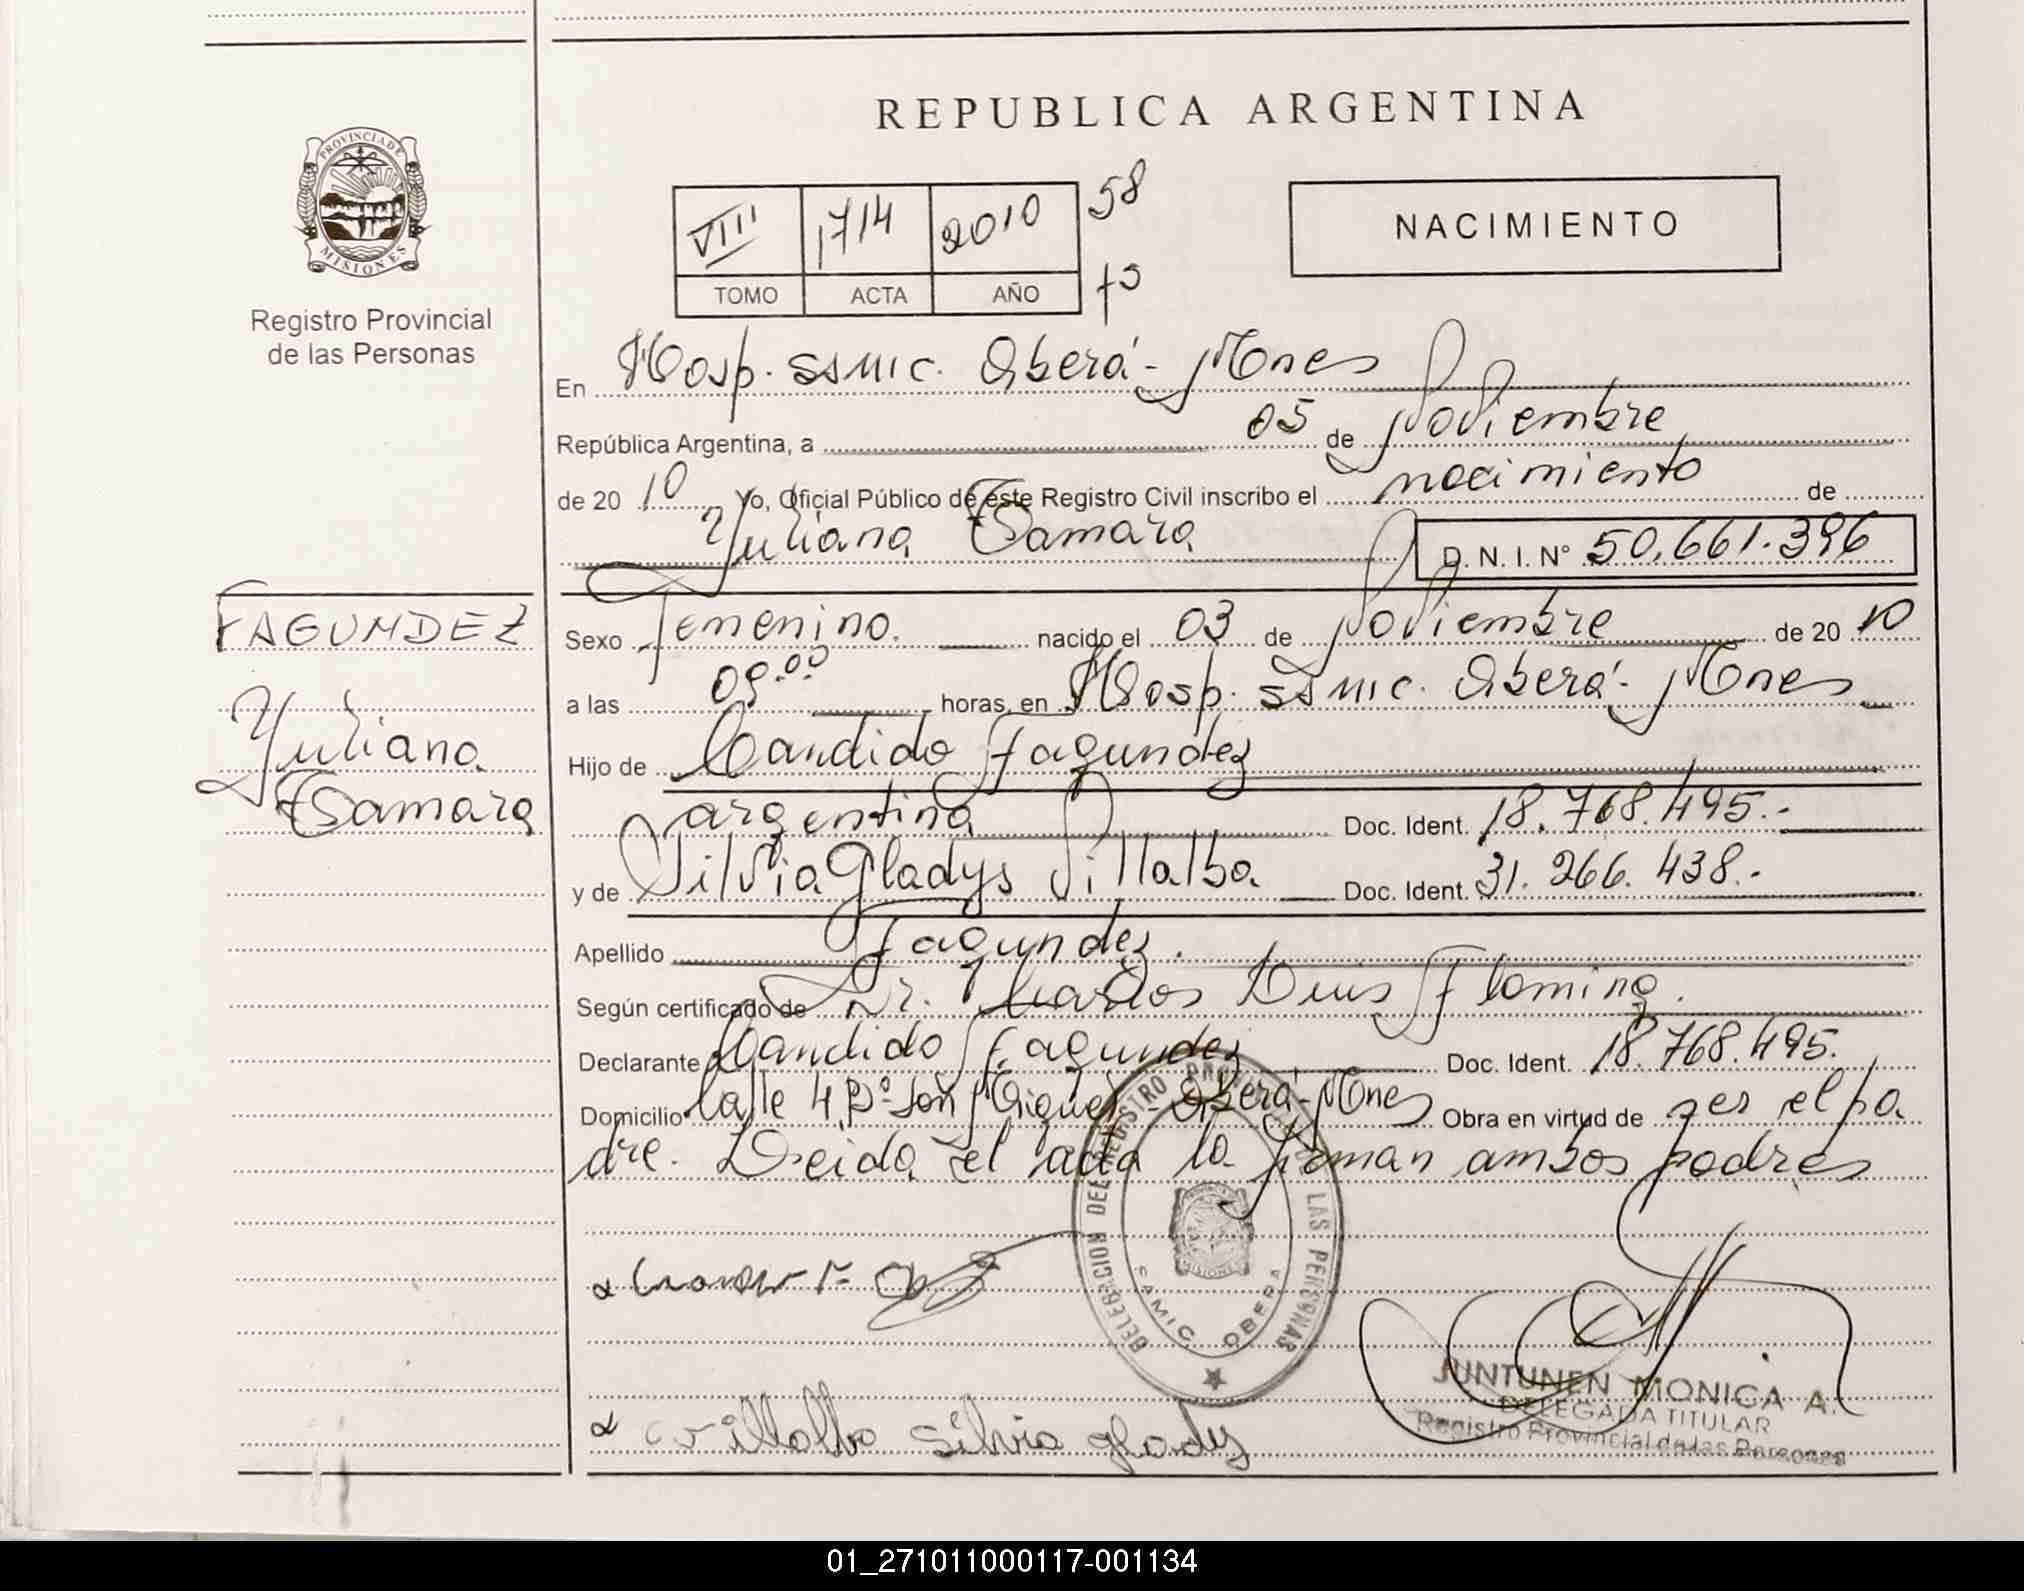 REPUBLICA ARGENTINA
PROVINCIA DE MISIONES
Registro Provincial
de las Personas
VIII 1714 2010 58
TOMO ACTA AÑO
NACIMIENTO
En Hosp. SSMIC. Oberá - Mnes
República Argentina, a 05 de Noviembre
de 2010 Yo, Oficial Público de este Registro Civil inscribo el nacimiento de
Yuliana Tamara D. N. I. N° 50.661.396
FAGUNDEZ
Yuliana
Tamara
Sexo Femenino. nacido el 03 de Noviembre de 2010
a las 09:00 horas, en Hosp. SSMIC. Oberá - Mnes
Hijo de Candido Fagundez
argentina Doc. Ident. 18.768.495.-
y de Silvia Gladys Villalba Doc. Ident. 31.266.438.-
Apellido Fagundez.
Según certificado de Dr. Carlos Luis Flaming.
Declarante Candido Fagundez Doc. Ident. 18.768.495.
Domicilio Calle 4 B° San Miguel - Oberá - Mnes Obra en virtud de ser el pa
dre. Leida el acta la firman ambos padres
DELEGACION DEL REGISTRO PROVINCIAL DE LAS PERSONAS
MISIONES
SAMIC. OBERA
Villalba Silvia glady
JUNTUNEN MONICA A.
DELEGADA TITULAR
Registro Provincial de las Personas
01_271011000117-001134